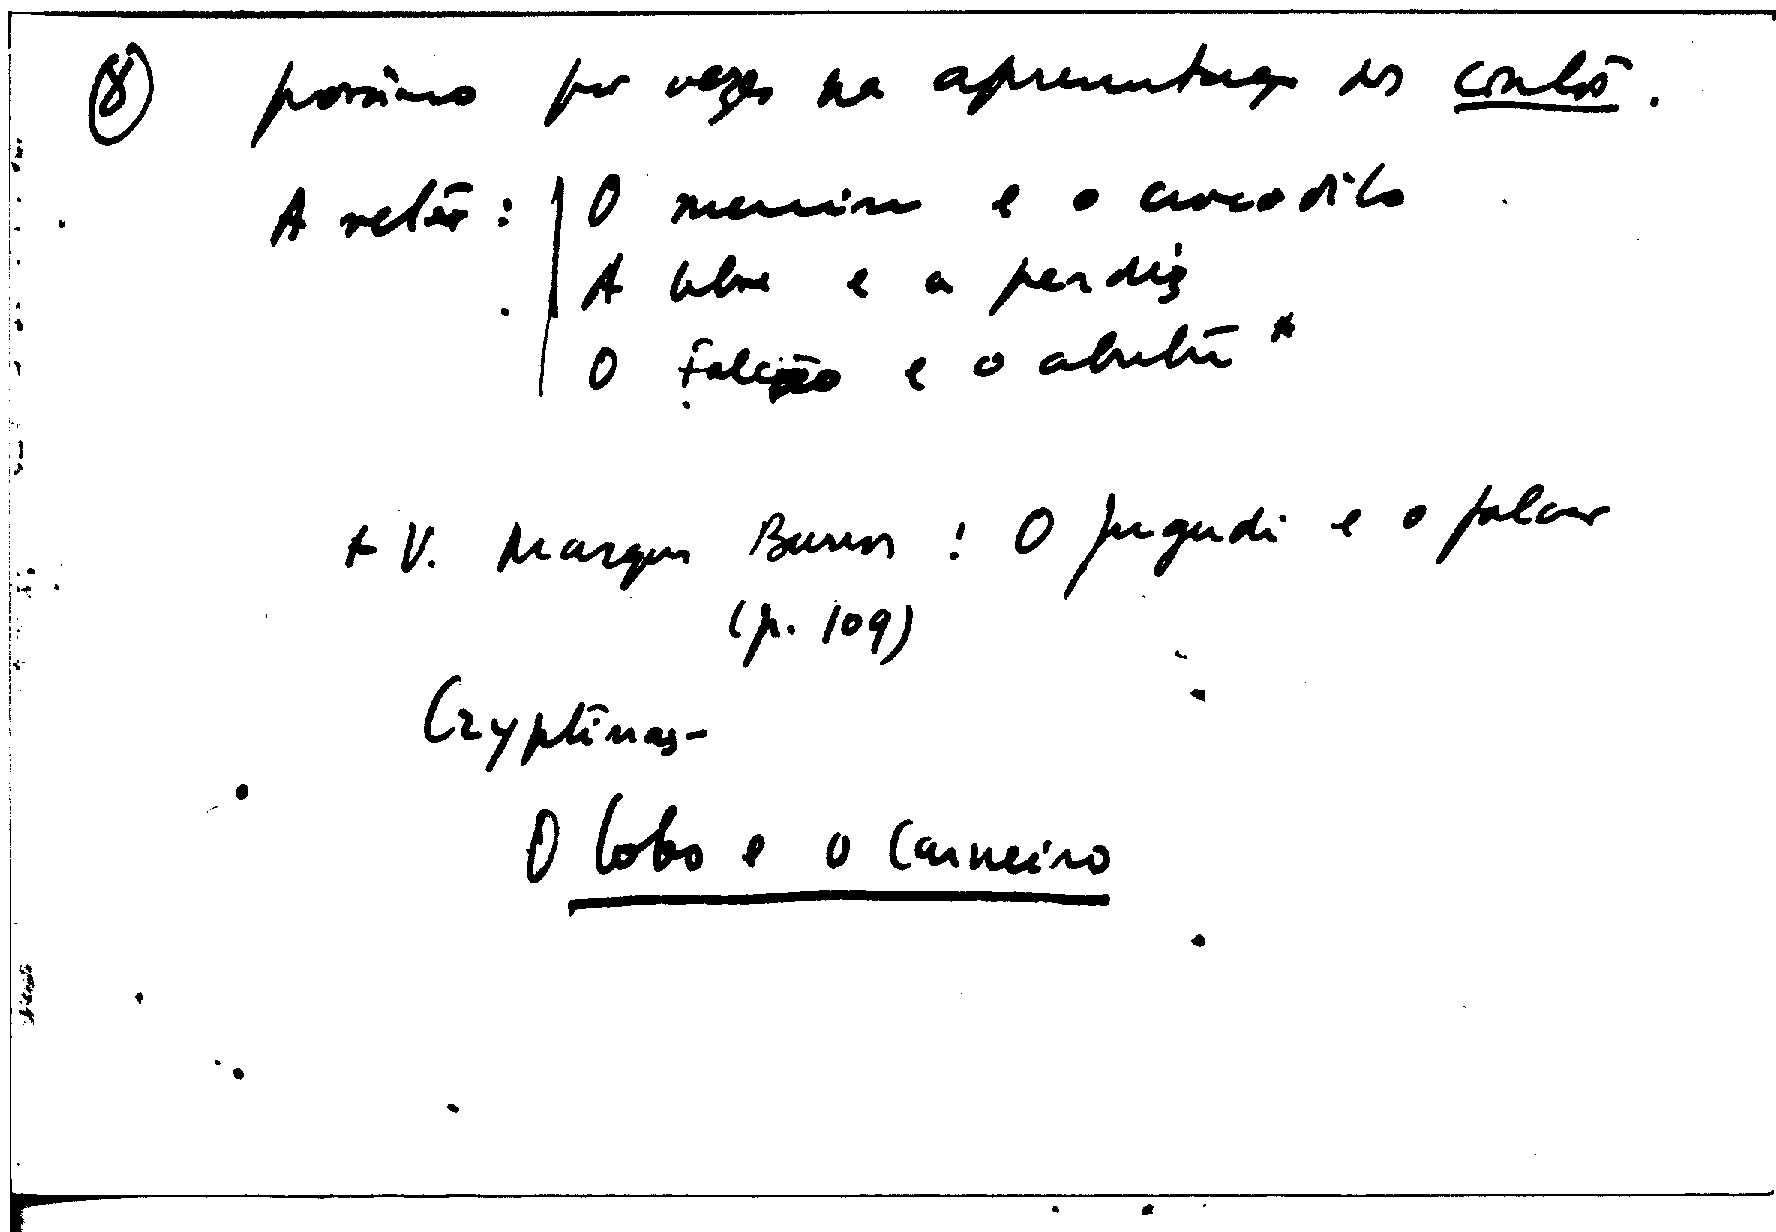 ⑧ por vezes na apresentação dos contos.
A reter: O menino e o crocodilo
A lebre e a perdiz
O Falcão e o abutre *
* V. Marques Barros : O jugudi e o falcão
(p. 109)
O lobo e o Carneiro